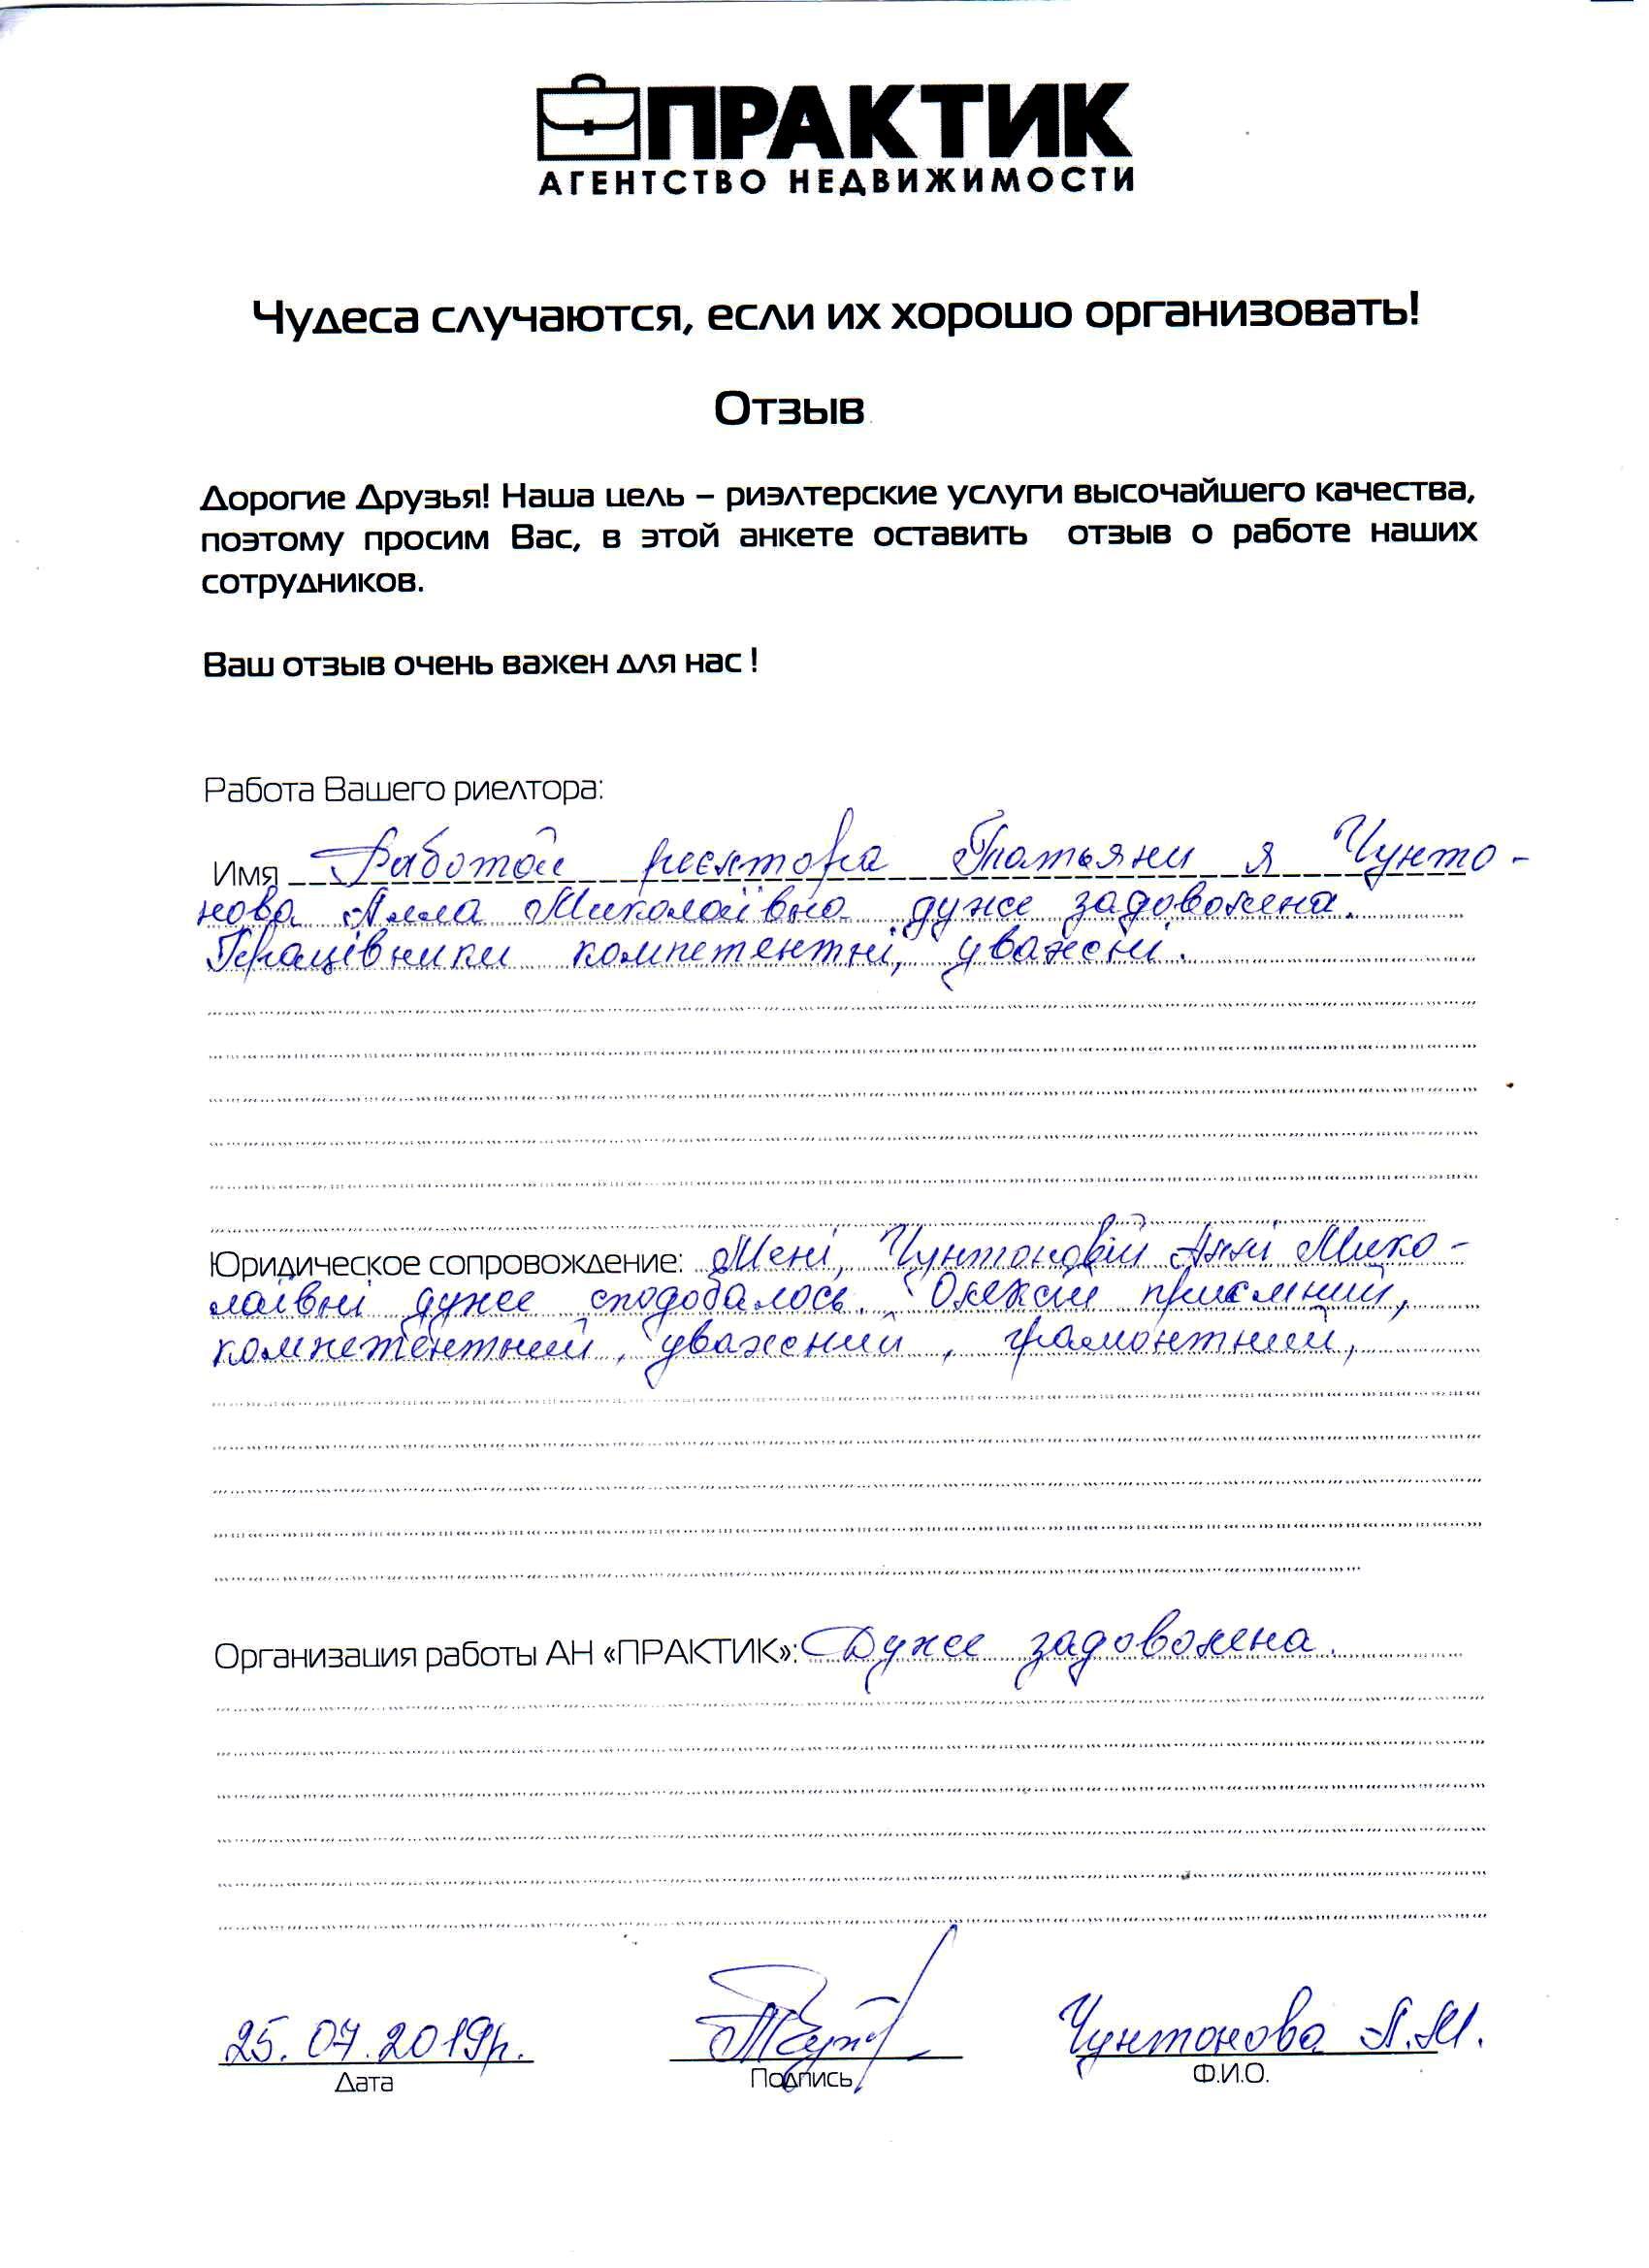 ПРАКТИК
АГЕНТСТВО НЕДВИЖИМОСТИ
Чудеса случаются, если их хорошо организовать!
Отзыв
Дорогие Друзья! Наша цель – риэлтерские услуги высочайшего качества,
поэтому просим Вас, в этой анкете оставить отзыв о работе наших
сотрудников.
Ваш отзыв очень важен для нас !
Работа Вашего риелтора:
Имя Работой риєлтора Татьяни я Чунто-
нова Алла Миколаївна дуже задоволена.
Працівники компетентні, уважені.
Юридическое сопровождение: Мені, Чунтоновій Аллі Мико-
лаївні дуже сподобалось. Олексій приємний,
компетентний, уважений, грамонтний,
Организация работы АН «ПРАКТИК»: Дуже задоволена.
25.07.2019р. Чунтонова А.М.
Дата Подпись Ф.И.О.